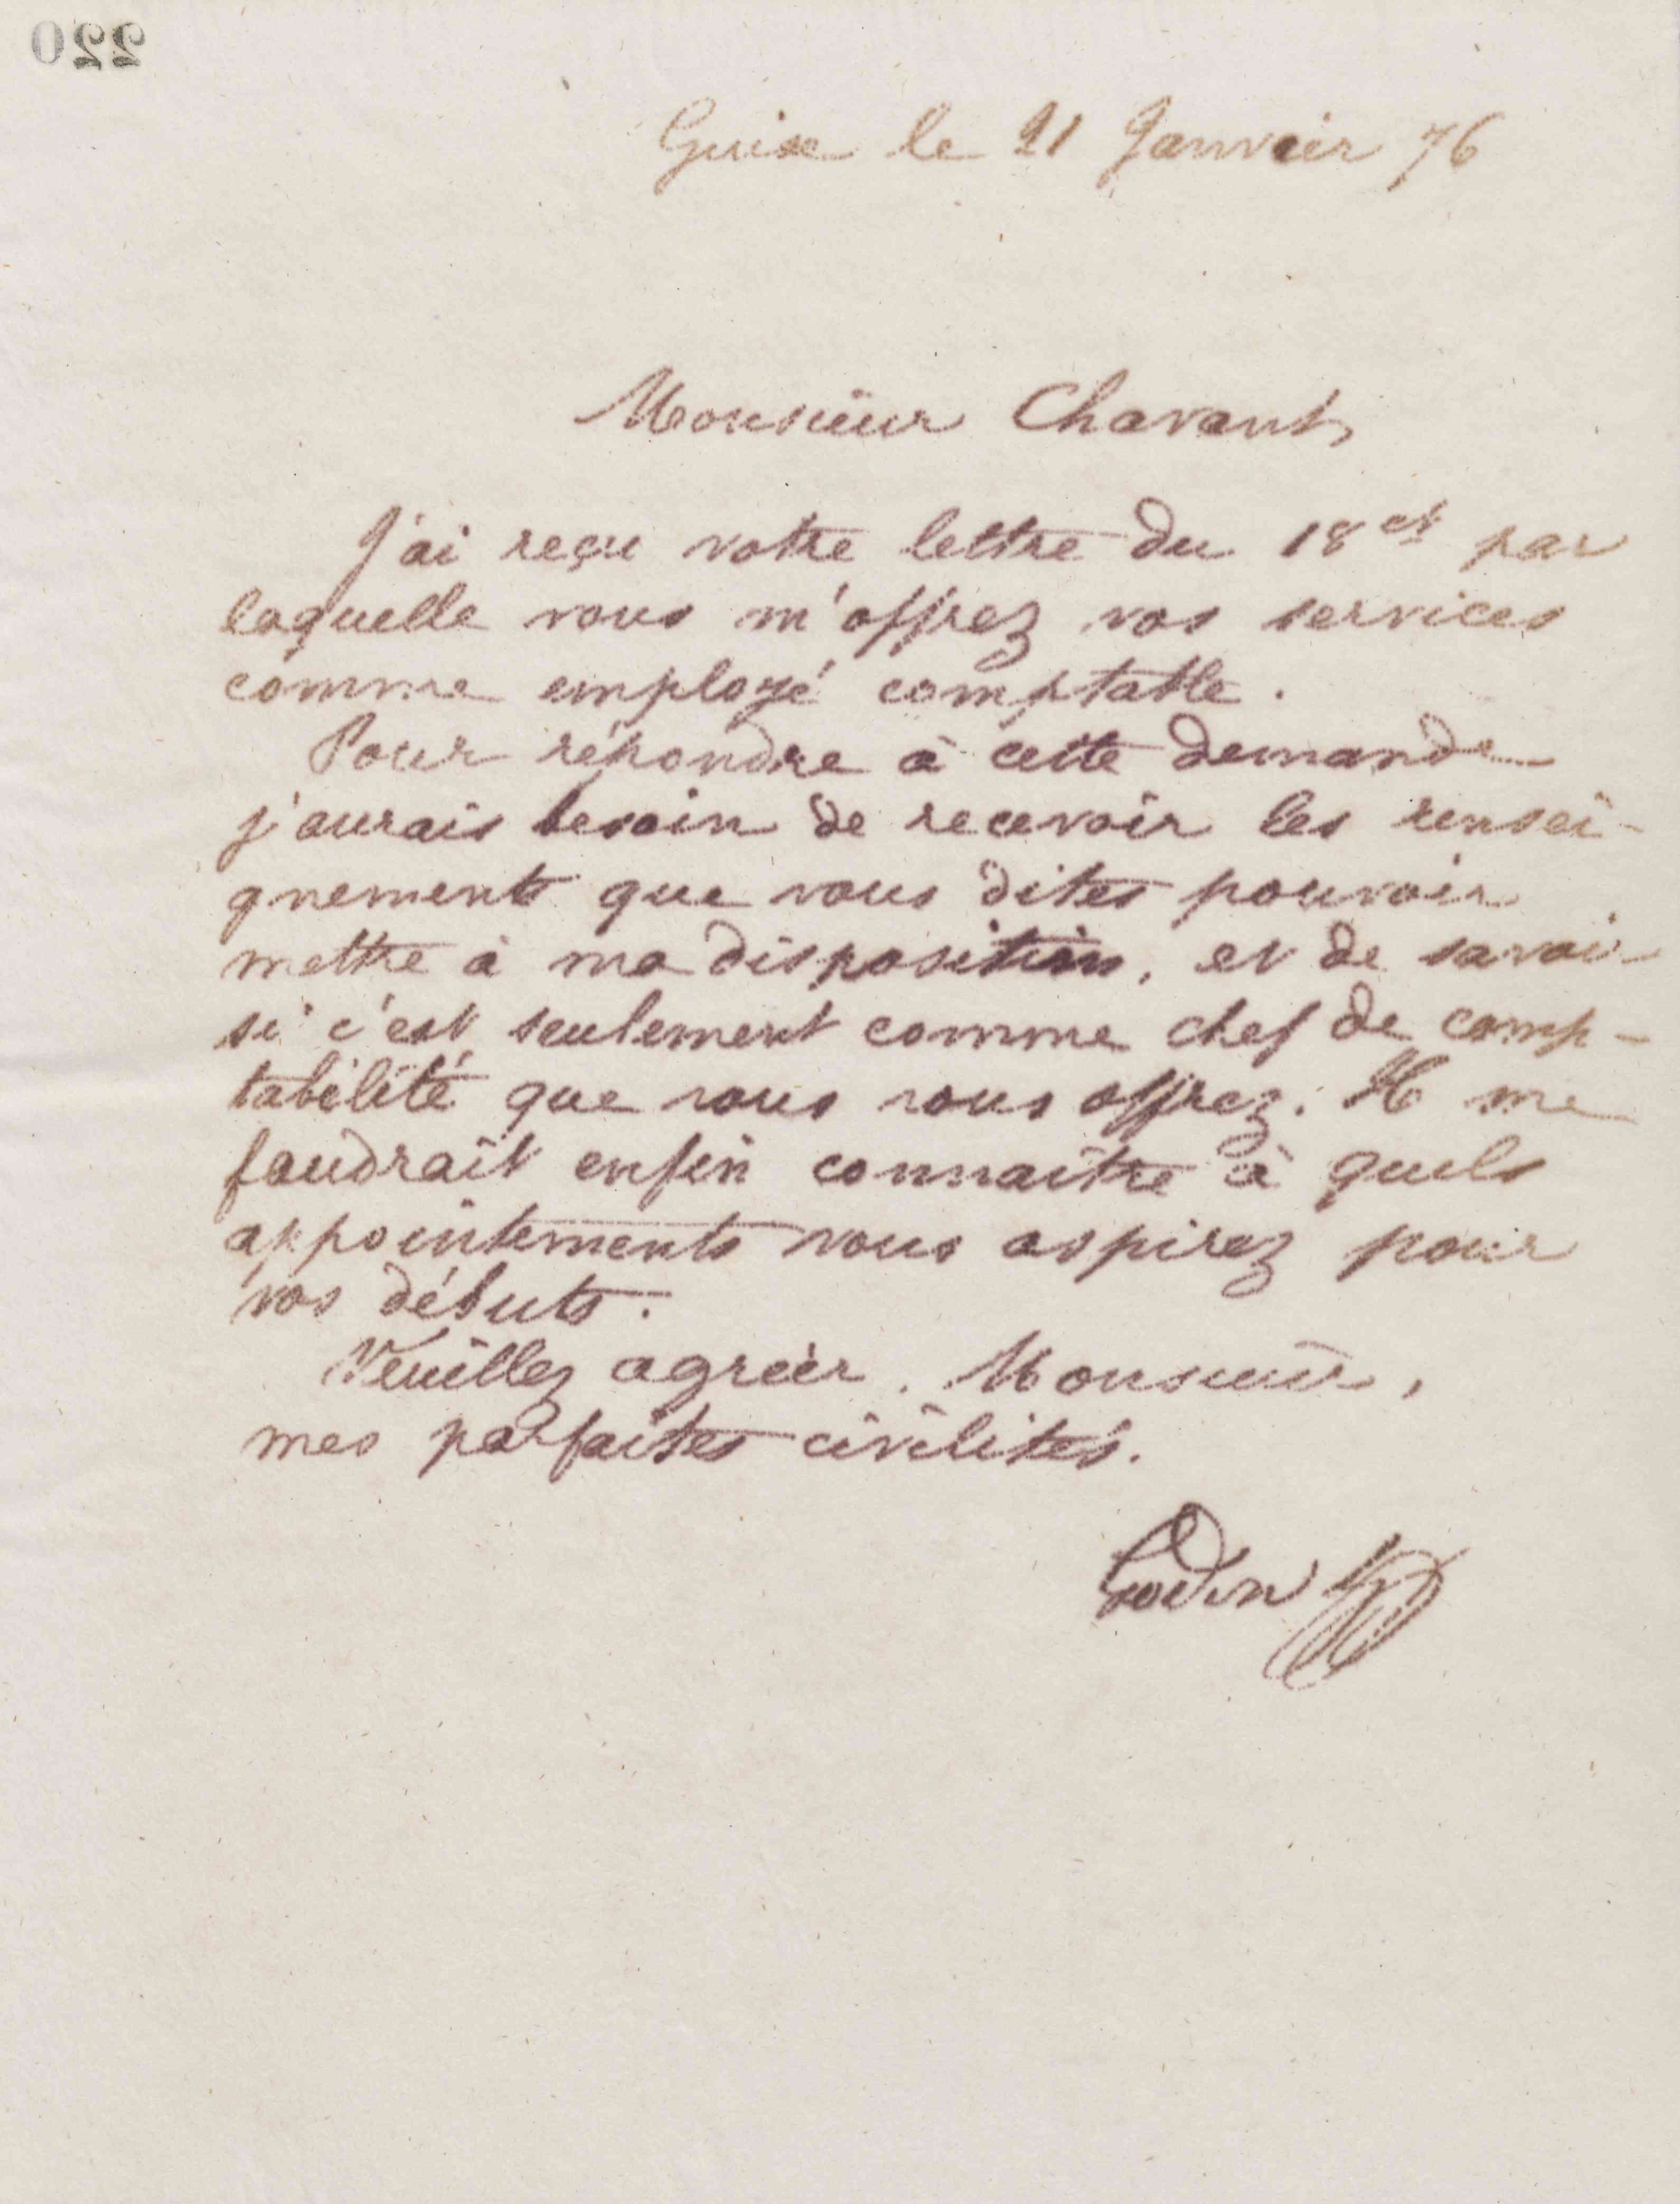 220
Guise le 21 Janvier 76
Monsieur Chavant,
J'ai reçu votre lettre du 18 ct par
laquelle vous m'offrez vos services
comme employé comptable.
Pour répondre à cette demande
j'aurais besoin de recevoir les rensei-
gnements que vous dites pouvoir
mettre à ma disposition, et de savoir
si c'est seulement comme chef de comp-
tabilité que vous vous offrez. Il me
faudrait enfin connaître à quels
appointements vous aspirez pour
vos débuts.
Veuillez agréer, Monsieur,
mes parfaites civilités.
Godin